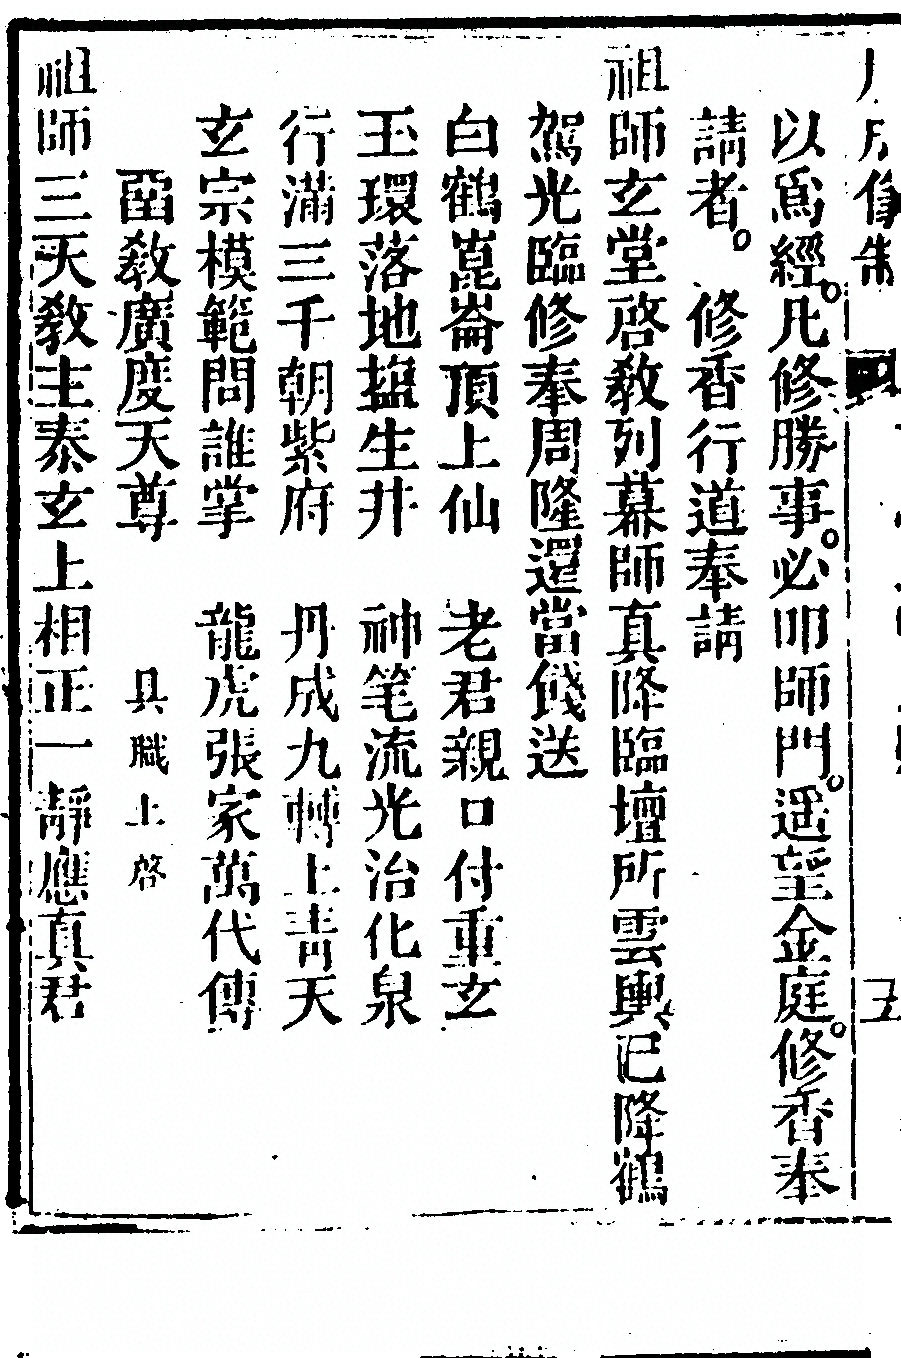 以為經。凡修勝事。必叩師門。遥望金庭。修香奉
請者。 修香行道奉請
祖師玄堂啓教列幕師真降臨壇所雲輿已降鶴
駕光臨修奉周隆還當餞送
白鶴崑崙頂上仙 老君親口付重玄
玉環落地盬生井 神笔流光治化泉
行滿三千朝紫府 丹成九轉上青天
玄宗模範問誰掌 龍虎張家萬代傳
啚教廣度天尊 具職上啓
祖師三天教主泰玄上相正一靜應真君